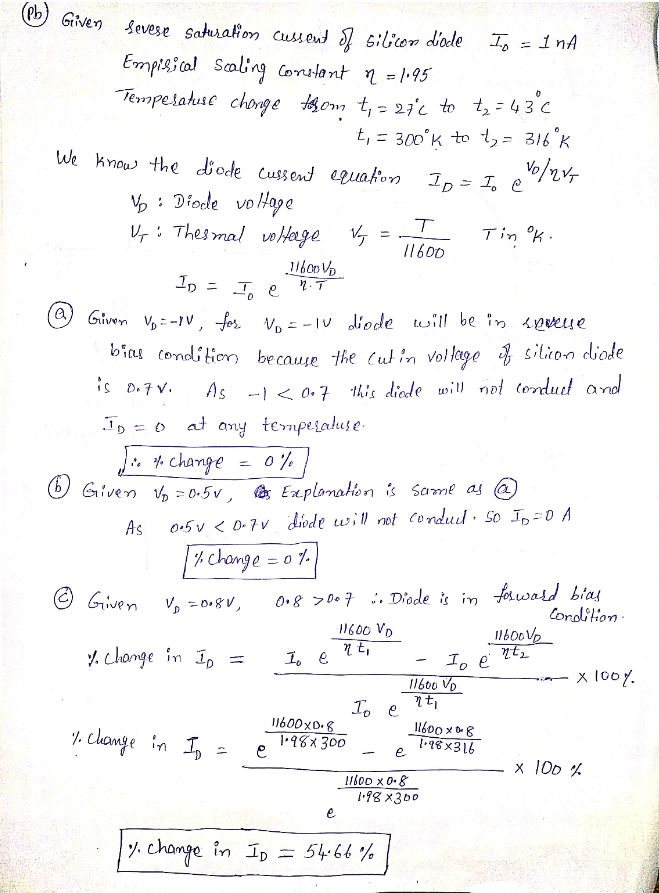 (Pb) Given severse saturation current of silicon diode I₀ = 1 nA
Empirical Scaling Constant η = 1.95
Temperature change from t₁ = 27°C to t₂ = 43°C
t₁ = 300°K to t₂ = 316°K
We know the diode current equation I_D = I₀ e^(V_D/ηV_T)
V_D : Diode voltage
V_T : Thermal voltage V_T = T/11600 T in °K.
I_D = I₀ e^(11600 V_D/η.T)
(a) Given V_D = -1V, for V_D = -1V diode will be in reverse
bias condition because the cut in voltage of silicon diode
is 0.7 V. As -1 < 0.7 this diode will not conduct and
I_D = 0 at any temperature.
∴ % change = 0 %
(b) Given V_D = 0.5V, Explanation is same as (a)
As 0.5V < 0.7V diode will not conduct. So I_D = 0 A
% change = 0 %
(c) Given V_D = 0.8V, 0.8 > 0.7 ∴ Diode is in forward bias
Condition.
% change in I_D = (I₀ e^(11600 V_D/ηt₁) - I₀ e^(11600 V_D/ηt₂)) / (I₀ e^(11600 V_D/ηt₁)) × 100 %.
% change in I_D = (e^(11600×0.8/1.98×300) - e^(11600×0.8/1.98×316)) / (e^(11600×0.8/1.98×300)) × 100 %
% change in I_D = 54.66 %